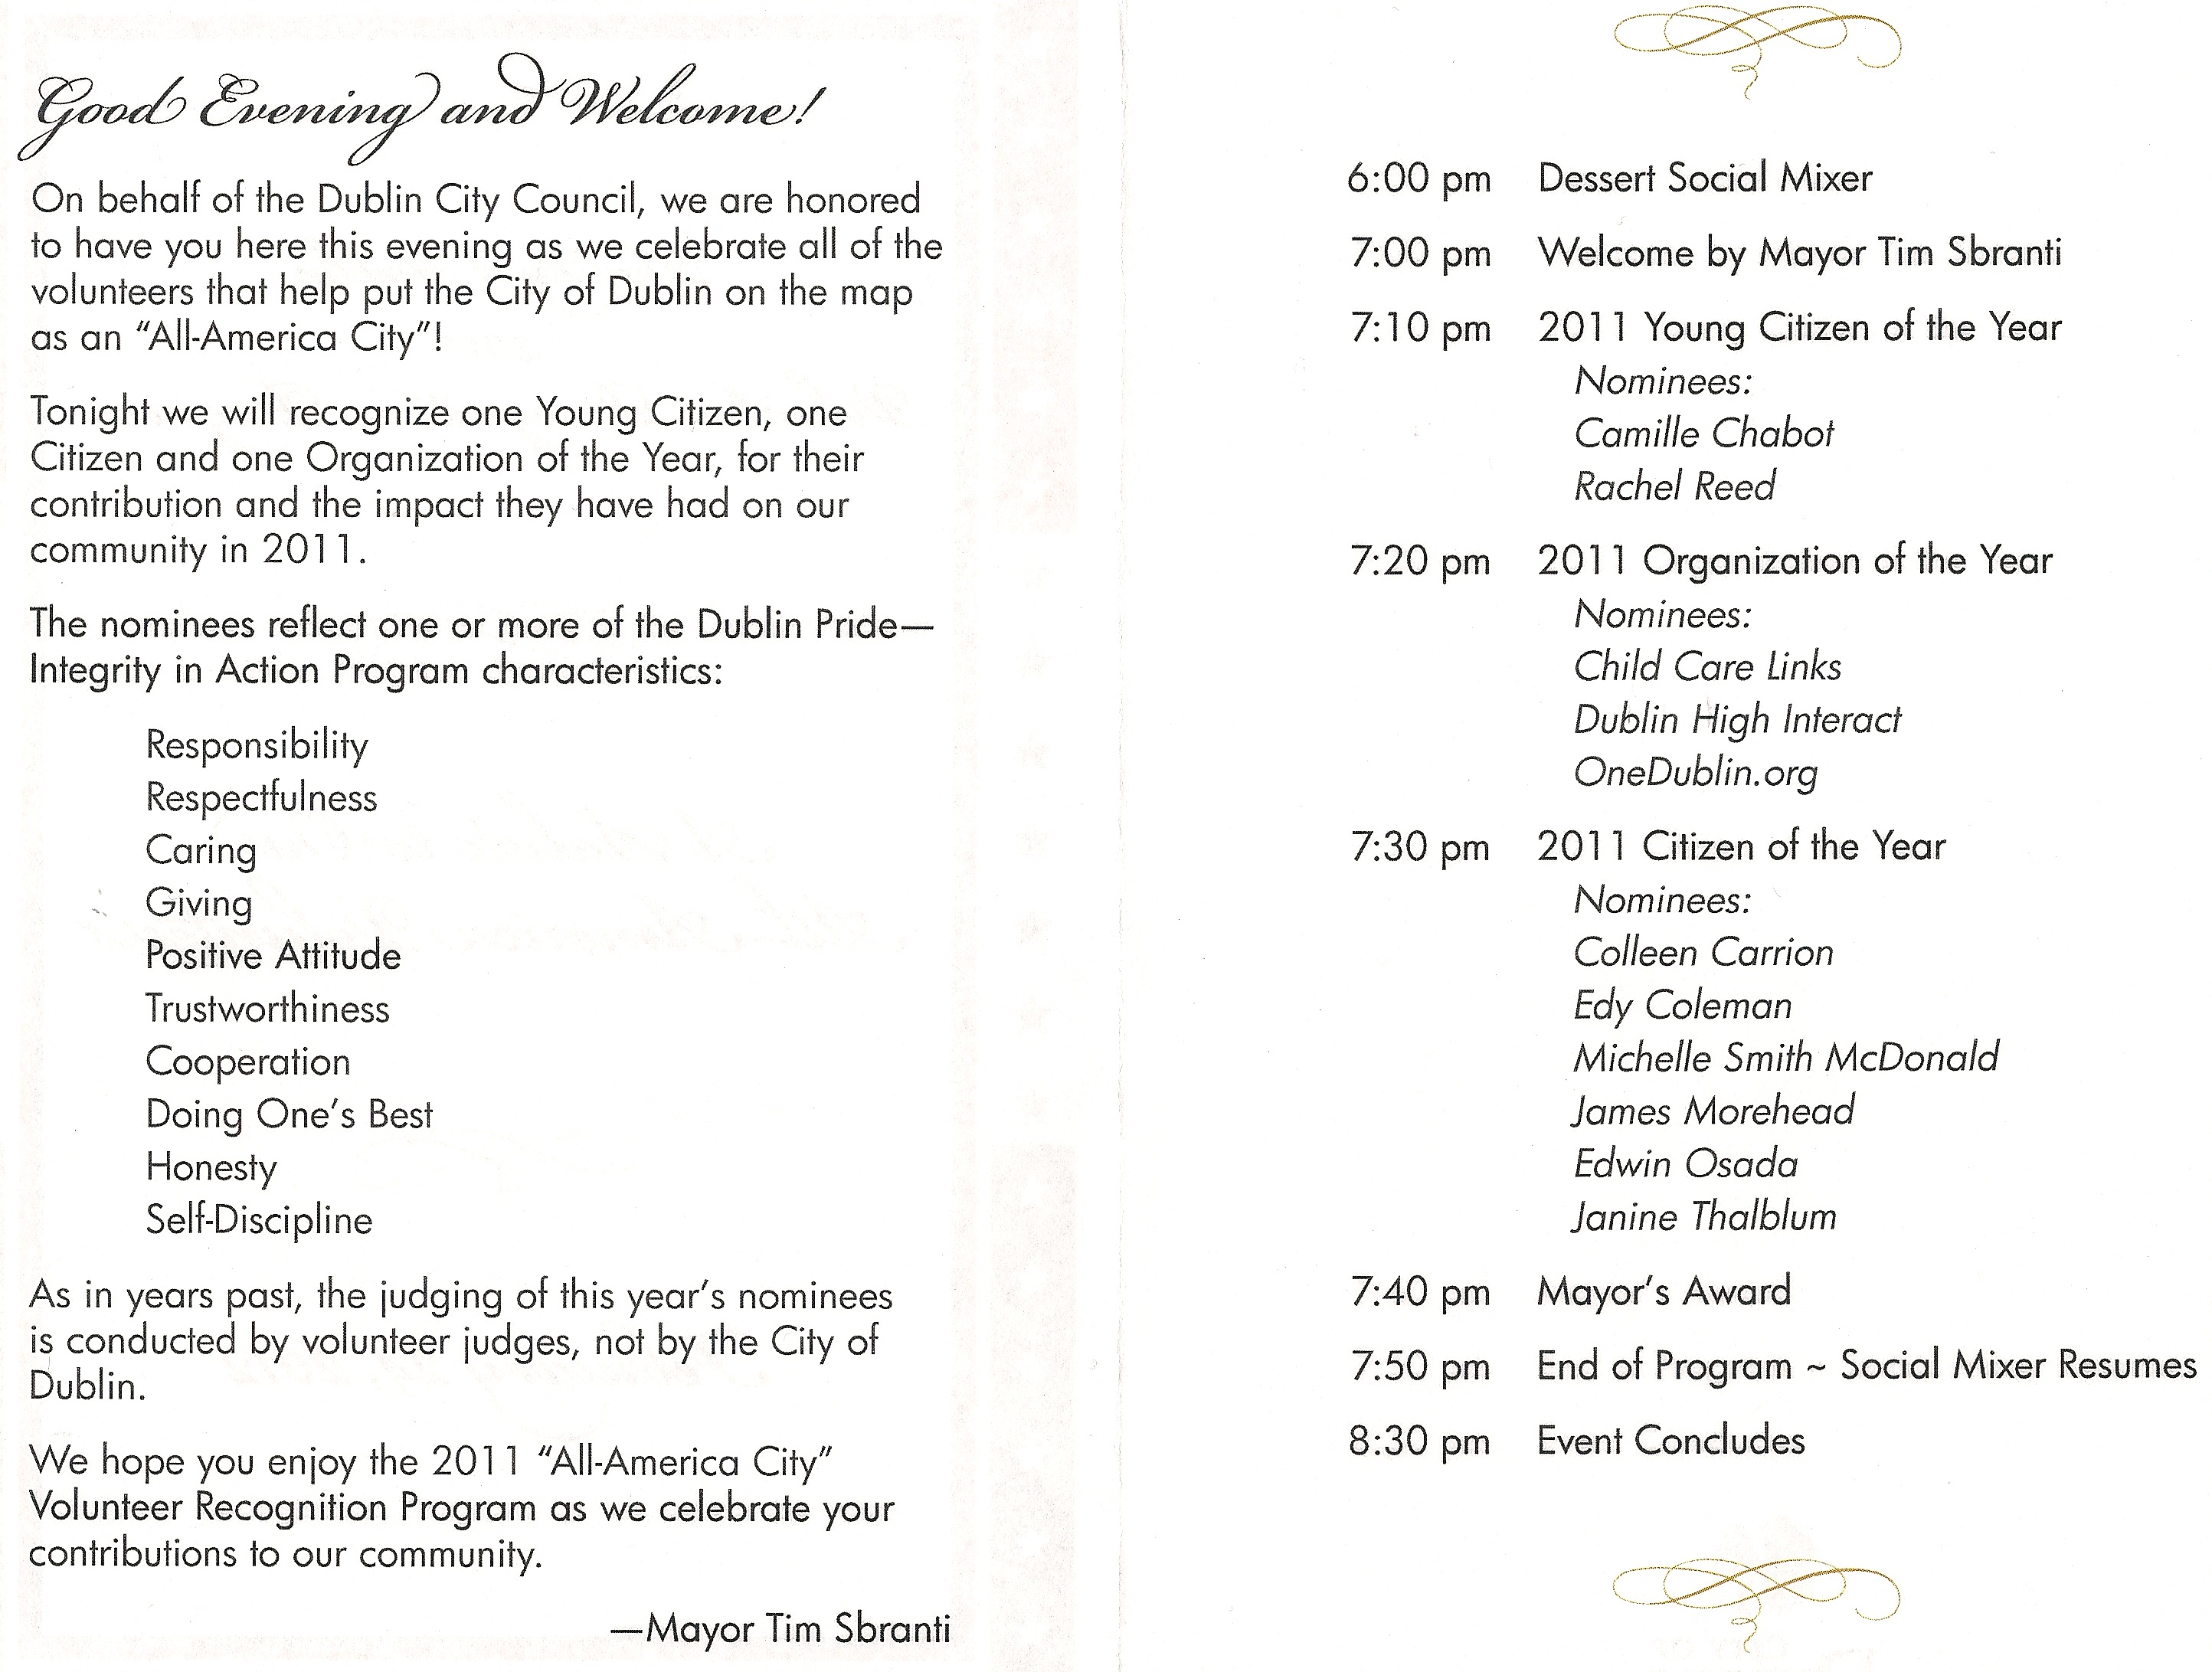 Good Evening and Welcome!
On behalf of the Dublin City Council, we are honored
to have you here this evening as we celebrate all of the
volunteers that help put the City of Dublin on the map
as an “All-America City”!
Tonight we will recognize one Young Citizen, one
Citizen and one Organization of the Year, for their
contribution and the impact they have had on our
community in 2011.
The nominees reflect one or more of the Dublin Pride—
Integrity in Action Program characteristics:
Responsibility
Respectfulness
Caring
Giving
Positive Attitude
Trustworthiness
Cooperation
Doing One’s Best
Honesty
Self-Discipline
As in years past, the judging of this year’s nominees
is conducted by volunteer judges, not by the City of
Dublin.
We hope you enjoy the 2011 “All-America City”
Volunteer Recognition Program as we celebrate your
contributions to our community.
—Mayor Tim Sbranti
6:00 pm Dessert Social Mixer
7:00 pm Welcome by Mayor Tim Sbranti
7:10 pm 2011 Young Citizen of the Year
Nominees:
Camille Chabot
Rachel Reed
7:20 pm 2011 Organization of the Year
Nominees:
Child Care Links
Dublin High Interact
OneDublin.org
7:30 pm 2011 Citizen of the Year
Nominees:
Colleen Carrion
Edy Coleman
Michelle Smith McDonald
James Morehead
Edwin Osada
Janine Thalblum
7:40 pm Mayor’s Award
7:50 pm End of Program ~ Social Mixer Resumes
8:30 pm Event Concludes